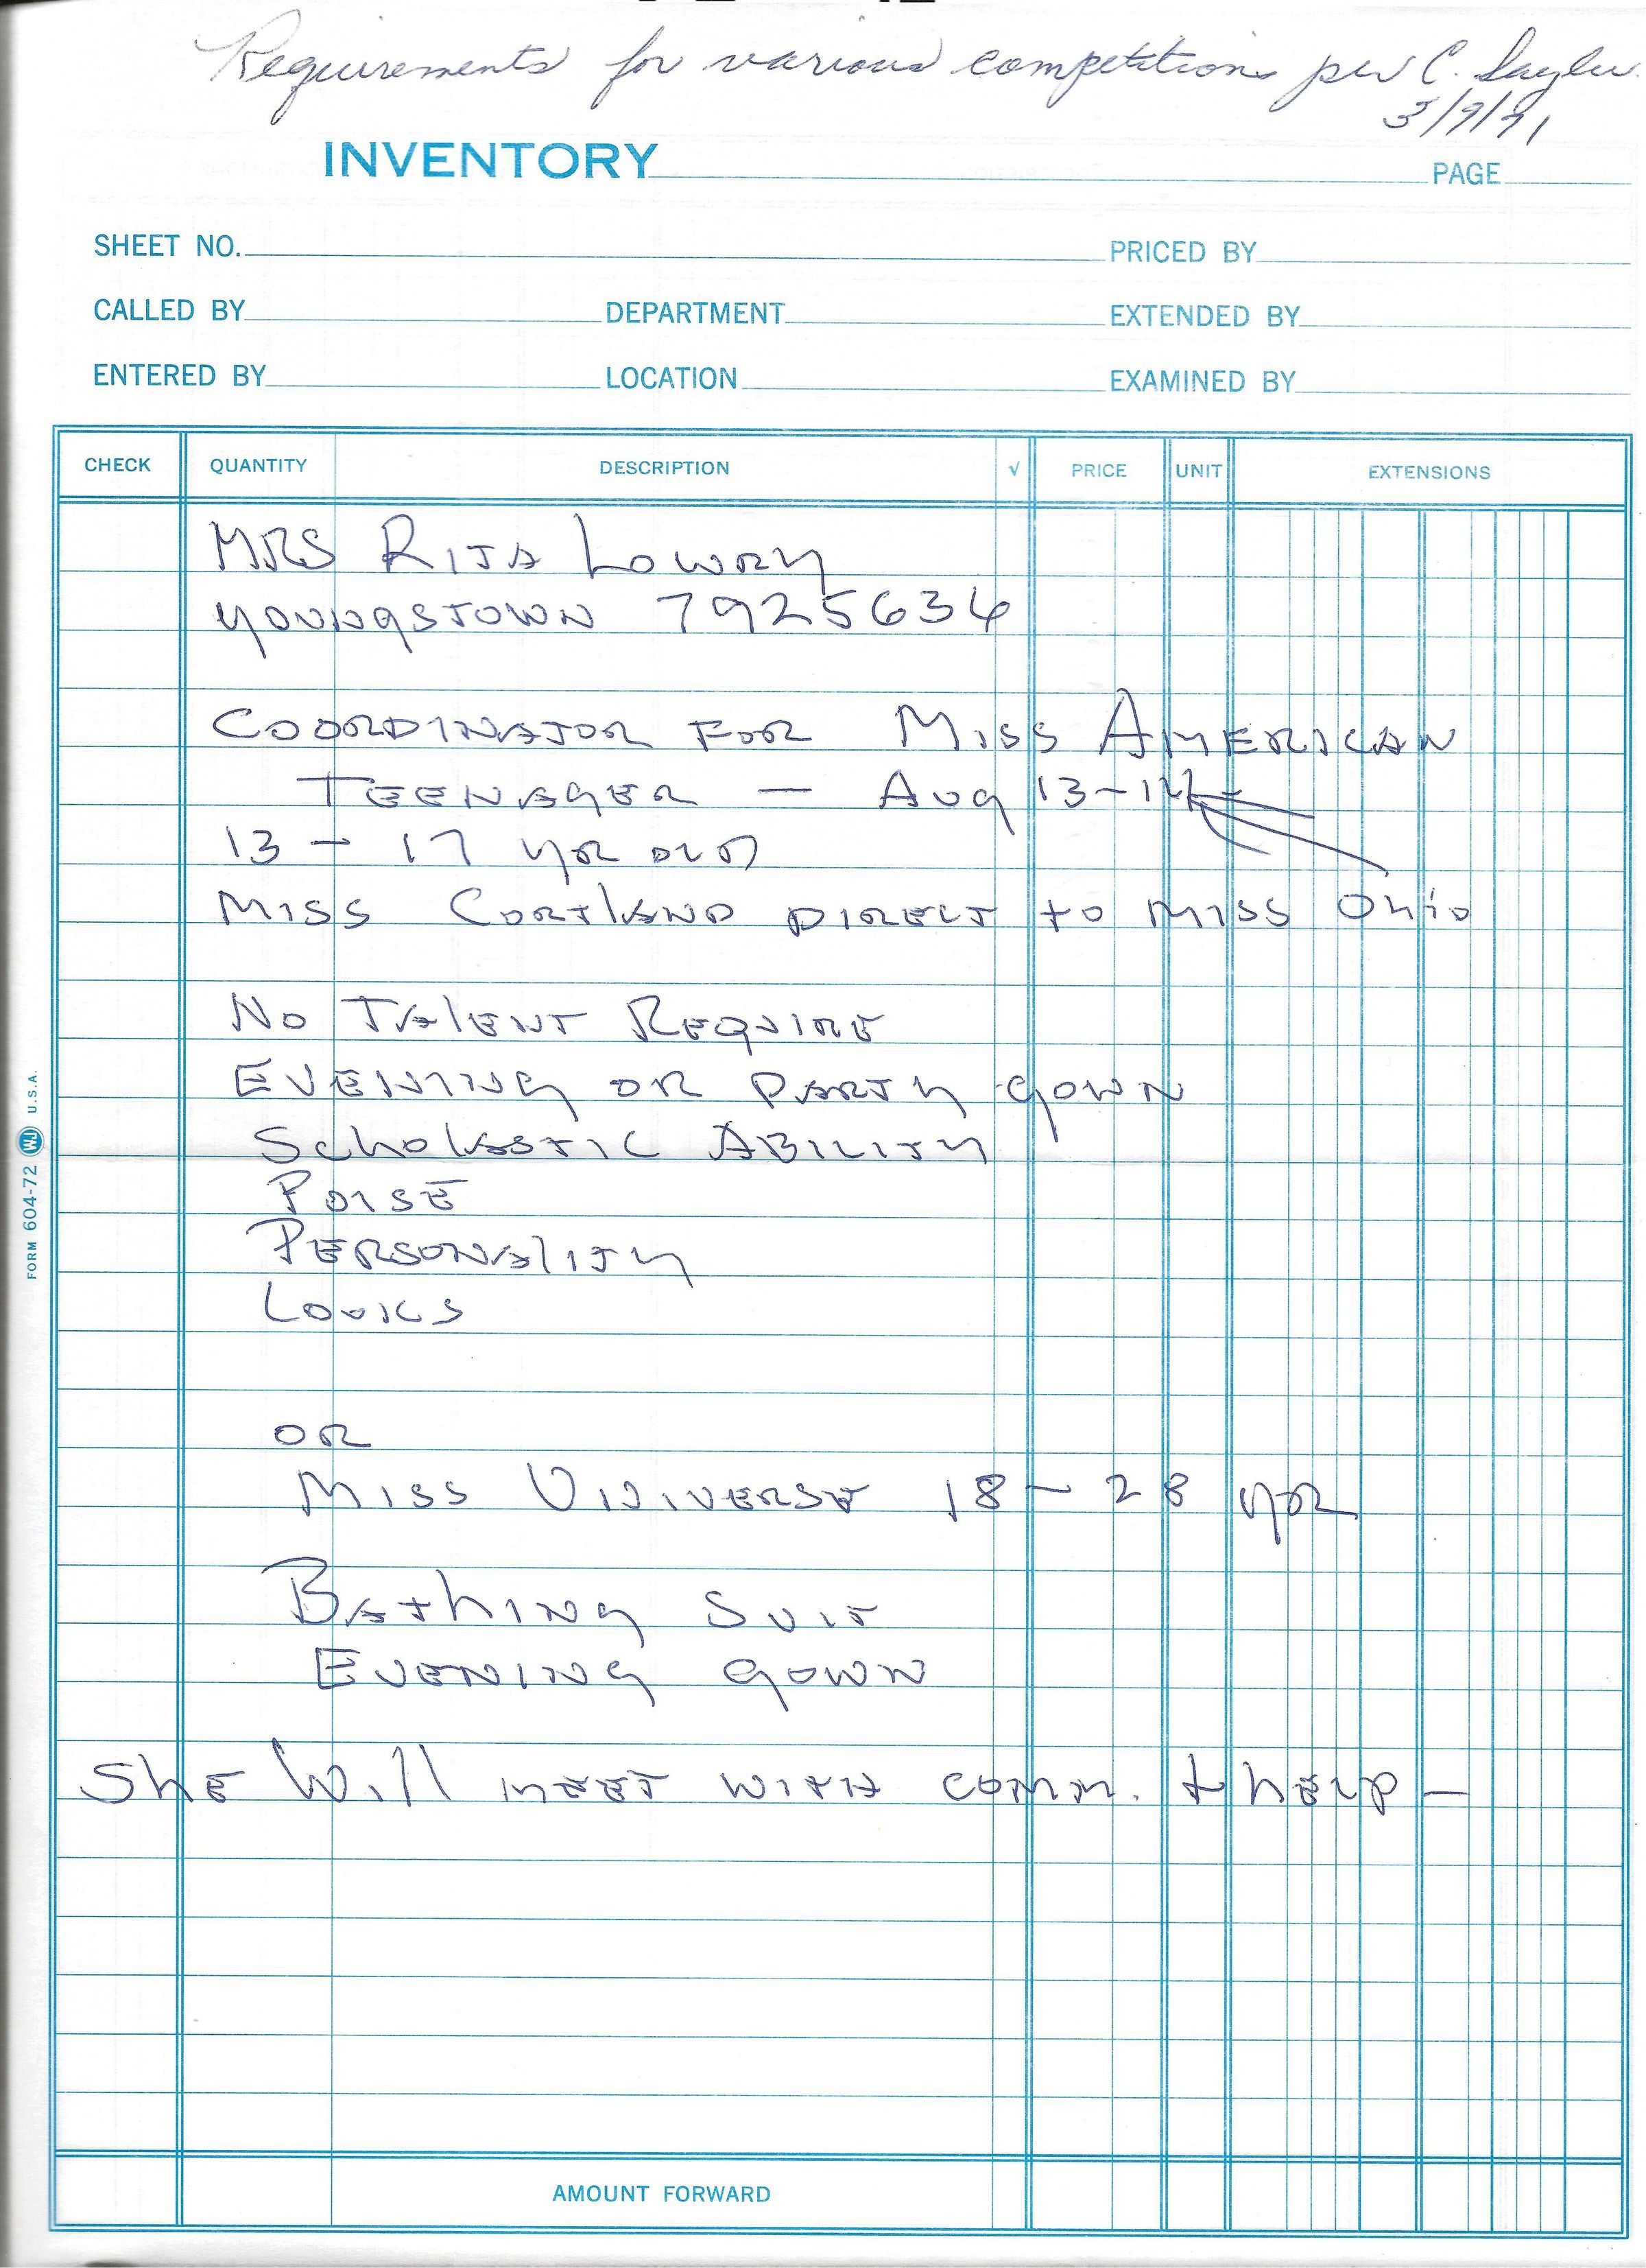 Requirements for various competitions per C. Sayler
3/9/71
INVENTORY PAGE
SHEET NO. PRICED BY
CALLED BY DEPARTMENT EXTENDED BY
ENTERED BY LOCATION EXAMINED BY
CHECK QUANTITY DESCRIPTION √ PRICE UNIT EXTENSIONS
MRS RITA LOWRY
YOUNGSTOWN 7925634
COORDINATOR FOR MISS AMERICAN
TEENAGER — AUG 13-14
13 - 17 YR OLD
MISS CORTLAND DIRECT to MISS OHIO
NO TALENT REQUIRE
EVENING OR PARTY GOWN
SCHOLASTIC ABILITY
POISE
PERSONALITY
LOOKS
OR
MISS UNIVERSE 18 - 28 YR
BATHING SUIT
EVENING GOWN
SHE WILL MEET WITH COMM. + HELP —
AMOUNT FORWARD
FORM 604-72 WJ U.S.A.